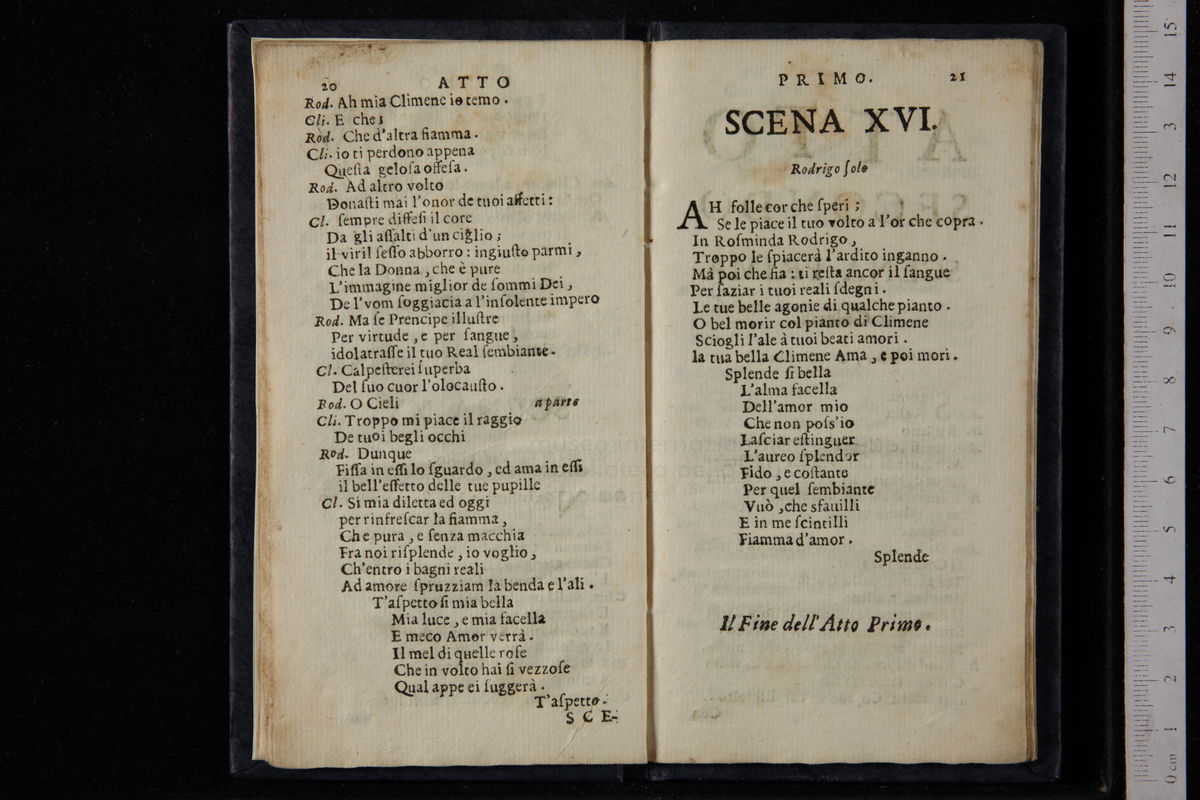 20 ATTO
Rod. Ah mia Climene io temo.
Cli. E che;
Rod. Che d'altra fiamma.
Cli. io ti perdono appena
Queſta geloſa offeſa.
Rod. Ad altro volto
Donaſti mai l'onor de tuoi affetti:
Cl. ſempre diffeſi il core
Da gli aſſalti d'un ciglio;
il viril ſeſſo abborro: ingiuſto parmi,
Che la Donna, che è pure
L'immagine miglior de ſommi Dei,
De l'vom ſoggiacia a l'inſolente impero
Rod. Ma ſe Prencipe illuſtre
Per virtude, e per ſangue,
idolatraſſe il tuo Real ſembiante.
Cl. Calpeſterei ſuperba
Del ſuo cuor l'olocauſto.
Rod. O Cieli a parte
Cli. Troppo mi piace il raggio
De tuoi begli occhi
Rod. Dunque
Fiſſa in eſſi lo ſguardo, ed ama in eſſi
il bell'effetto delle tue pupille
Cl. Si mia diletta ed oggi
per rinfreſcar la fiamma,
Che pura, e ſenza macchia
Fra noi riſplende, io voglio,
Ch'entro i bagni reali
Ad amore ſpruzziam la benda e l'ali.
T'aſpetto ſi mia bella
Mia luce, e mia facella
E meco Amor verrà.
Il mel di quelle roſe
Che in volto hai ſi vezzoſe
Qual appe ei ſuggerà.
T'aſpetto.
SCE-
PRIMO. 21
SCENA XVI.
Rodrigo ſolo
AH folle cor che ſperi;
Se le piace il tuo volto a l'or che copra.
In Roſminda Rodrigo,
Troppo le ſpiacerà l'ardito inganno.
Mà poi che fia: ti reſta ancor il ſangue
Per ſaziar i tuoi reali ſdegni.
Le tue belle agonie di qualche pianto.
O bel morir col pianto di Climene
Sciogli l'ale à tuoi beati amori.
la tua bella Climene Ama, e poi mori.
Splende ſi bella
L'alma facella
Dell'amor mio
Che non poſs'io
Laſciar eſtinguer
L'aureo ſplendor
Fido, e coſtante
Per quel ſembiante
Vuò, che sfauilli
E in me ſcintilli
Fiamma d'amor.
Splende
Il Fine dell'Atto Primo.